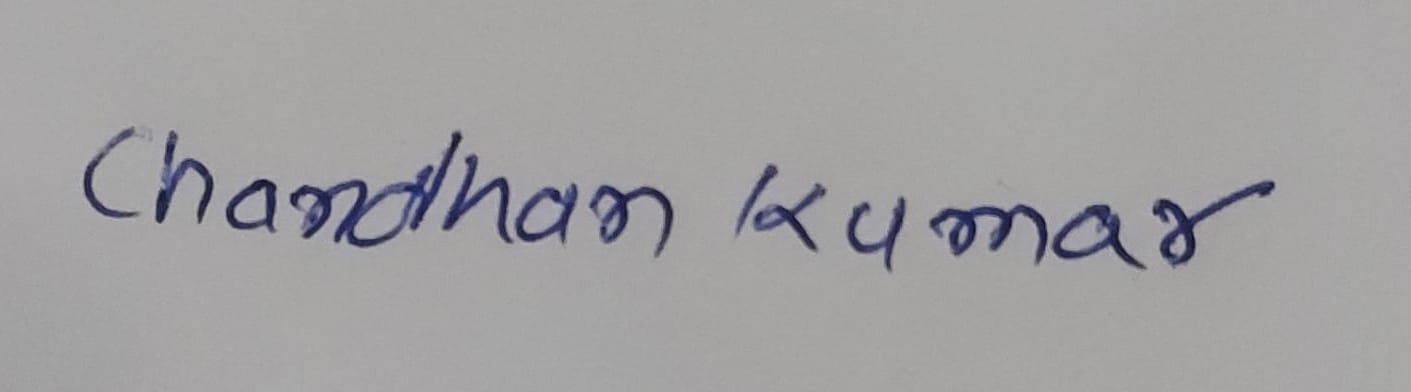 Chandhan Kumar